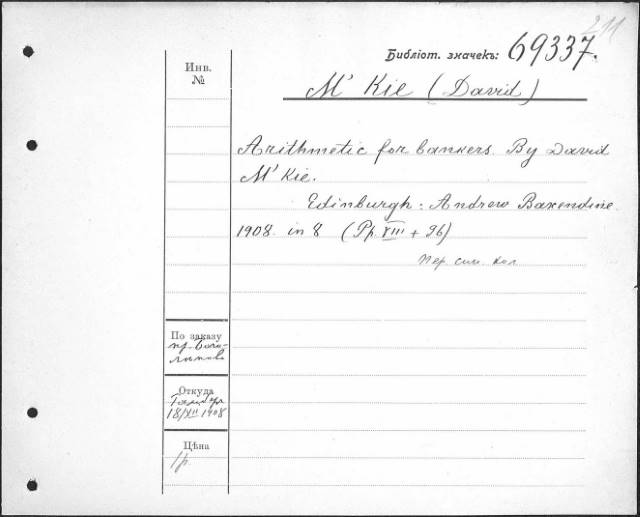 211
Библіот. значекъ: 69337.
Инв.
№
M' Kie (David)
Arithmetic for bankers. By David
M' Kie.
Edinburgh: Andrew Baxendine.
1908. in 8 (Pp. XIII + 96)
пер. син. кол
По заказу
пр. Бого-
лепова
Откуда
18/XII 1908
Цѣна
1р.